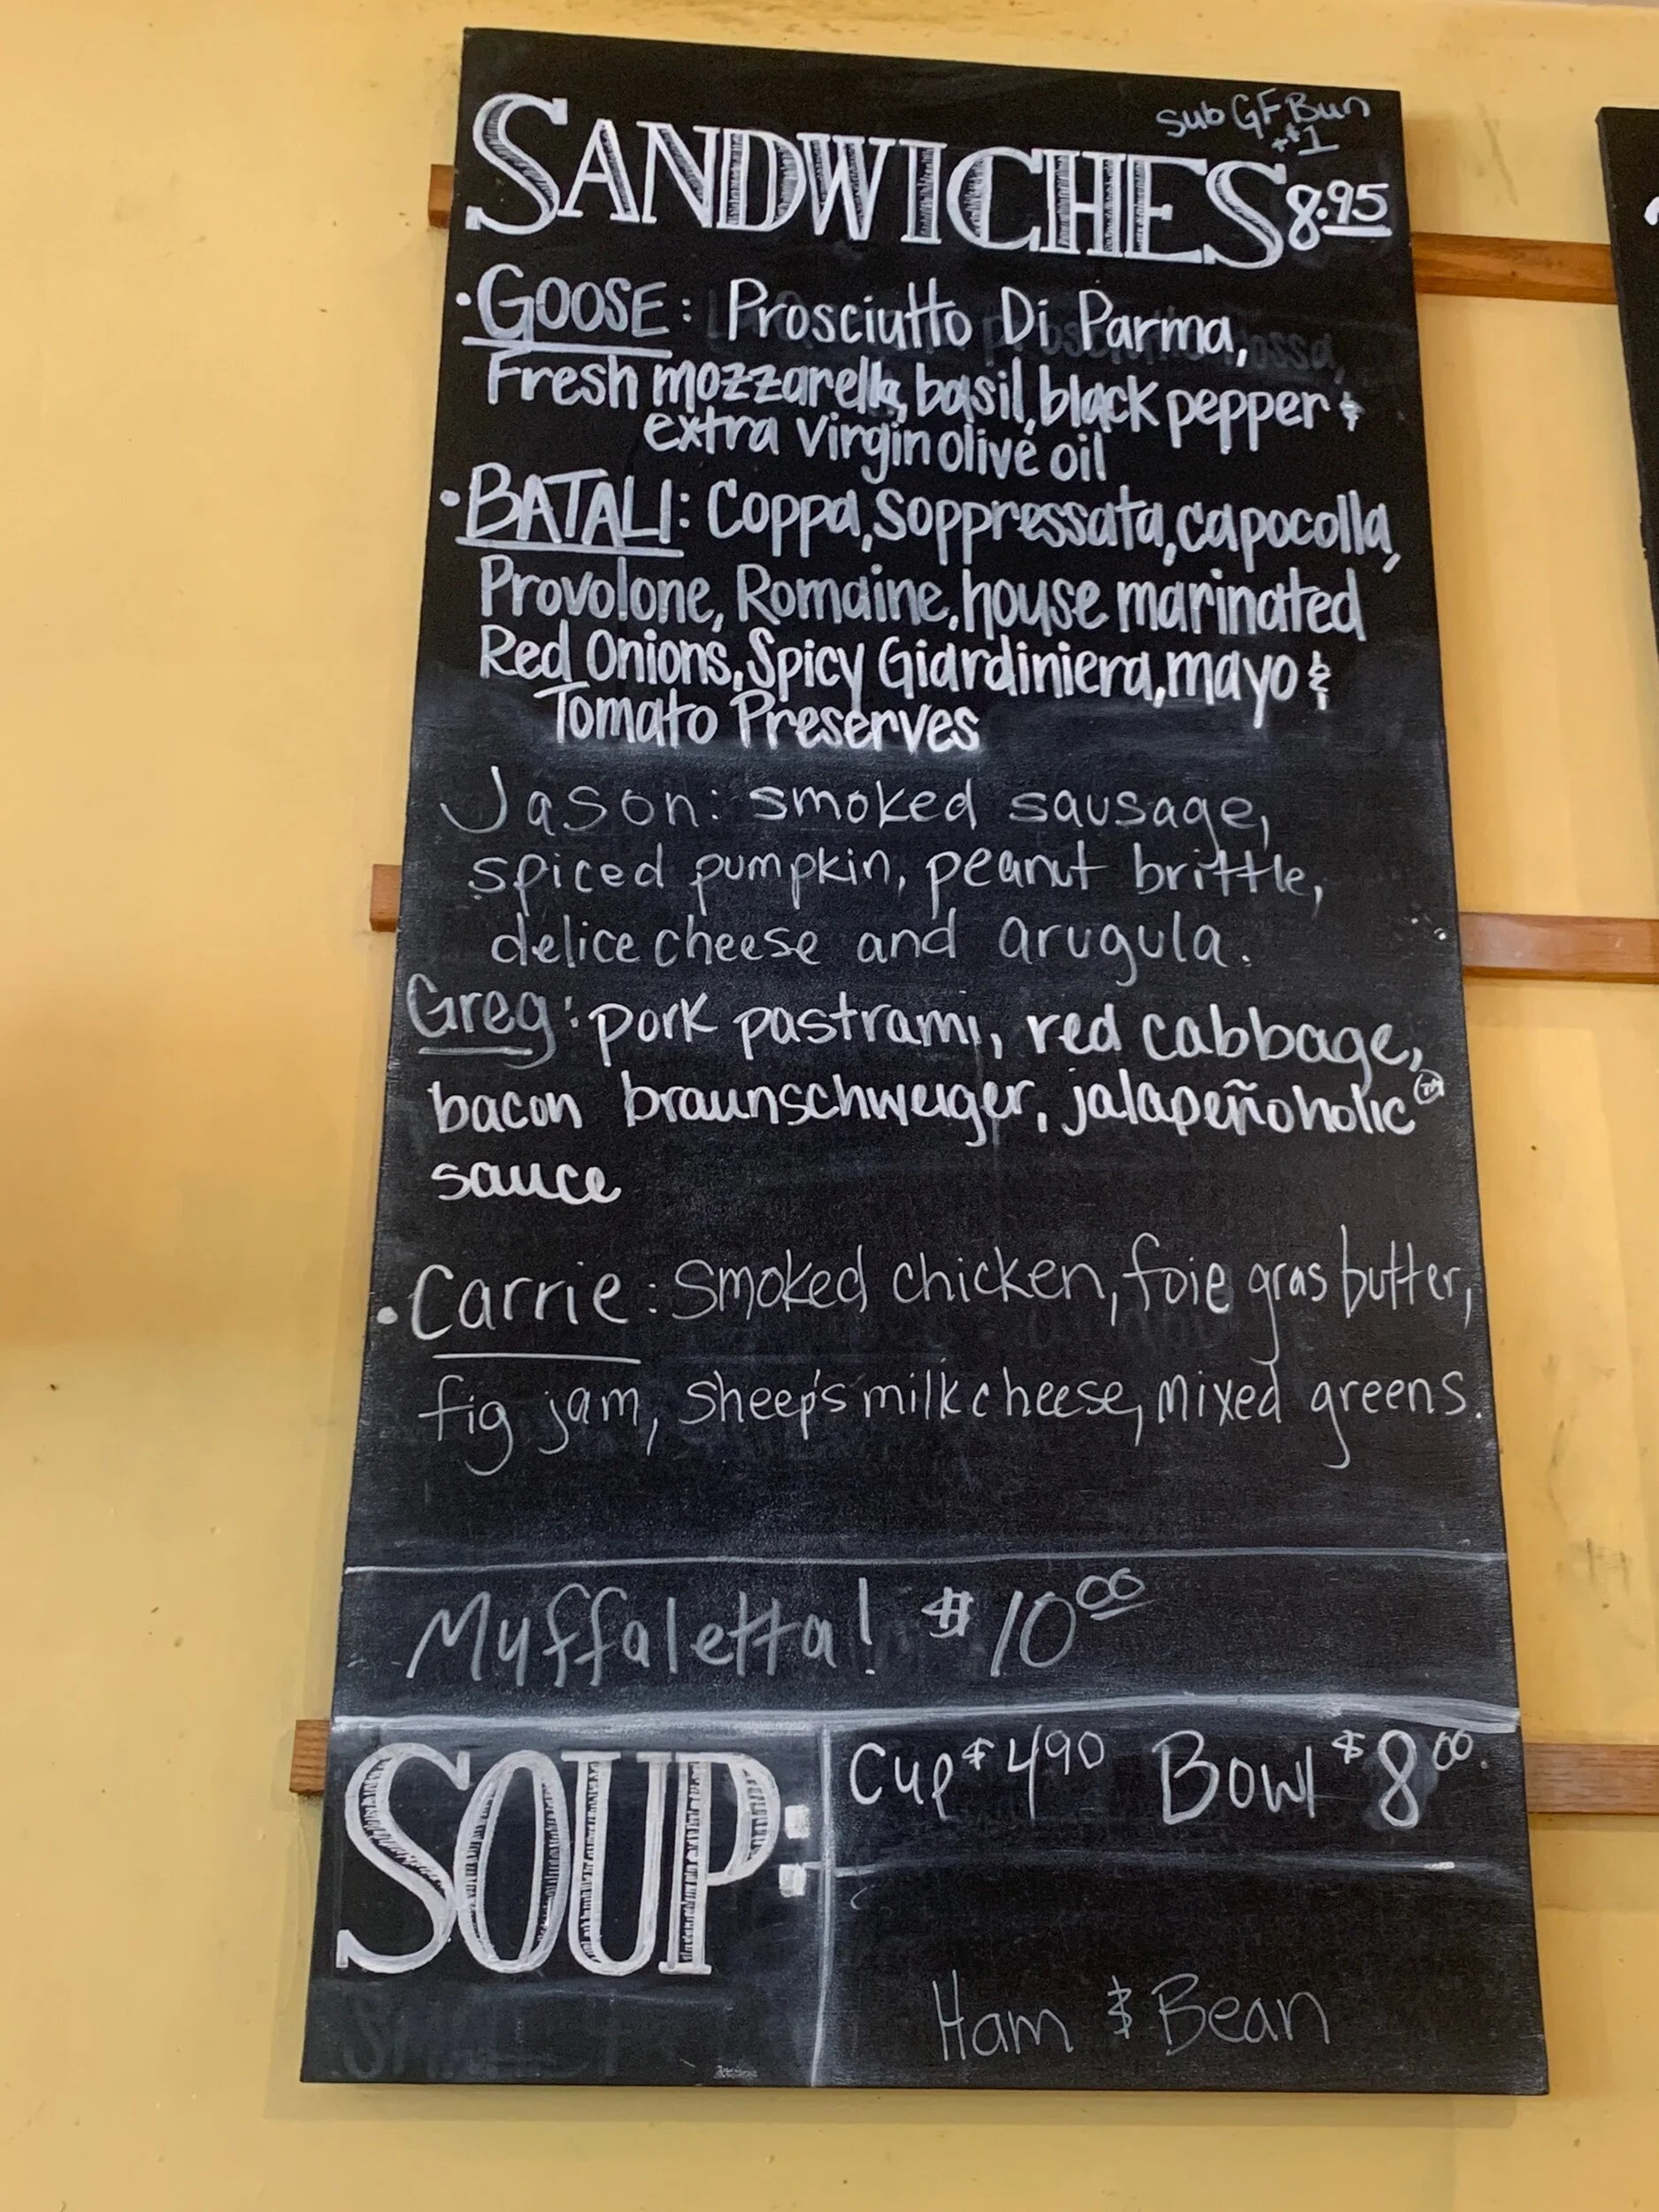 sub GF Bun
+$1
SANDWICHES 8.95
• GOOSE: Prosciutto Di Parma,
Fresh mozzarella, basil, black pepper &
extra virgin olive oil
• BATALI: Coppa, Soppressata, capocolla,
Provolone, Romaine, house marinated
Red Onions, Spicy Giardiniera, mayo &
Tomato Preserves
Jason: smoked sausage,
spiced pumpkin, peanut brittle,
delice cheese and arugula.
Greg: pork pastrami, red cabbage,
bacon braunschweiger, jalapeñoholic™
sauce
• Carrie: Smoked chicken, foie gras butter,
fig jam, sheep's milk cheese, mixed greens.
Muffaletta! $10 00
SOUP: Cup $4 90 Bowl $8 00
Ham & Bean